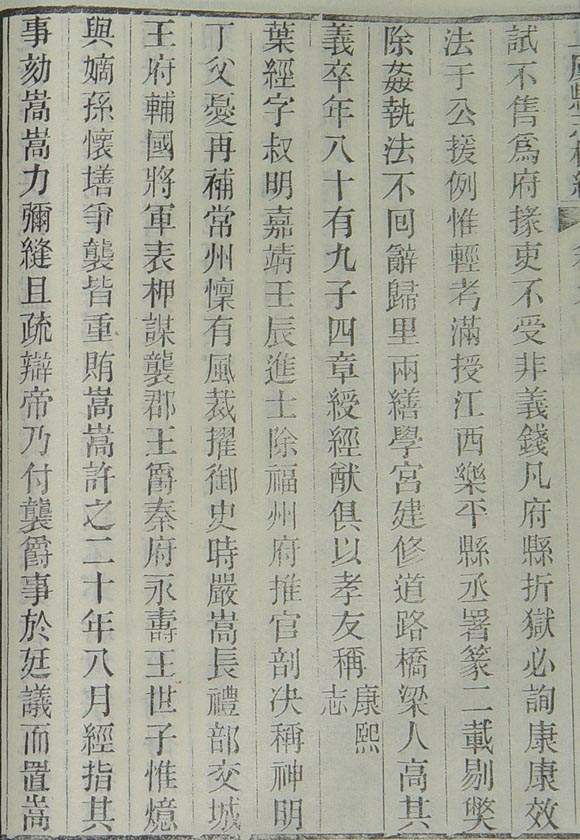 試不售爲府掾吏不受非義錢凡府縣折獄必詢康康效
法于公援例惟輕考滿授江西樂平縣丞署篆二載剔獘
除姦執法不回辭歸里兩繕學宮建修道路橋梁人高其
義卒年八十有九子四章綬經猷俱以孝友稱康熙志
葉經字叔明嘉靖壬辰進士除福州府推官剖决稱神明
丁父憂再補常州懍有風裁擢御史時嚴嵩長禮部交城
王府輔國將軍表柙謀襲郡王爵秦府永壽王世子惟燱
與嫡孫懷墡爭襲皆重賄嵩嵩許之二十年八月經指其
事劾嵩嵩力彌縫且疏辯帝乃付襲爵事於廷議而置嵩